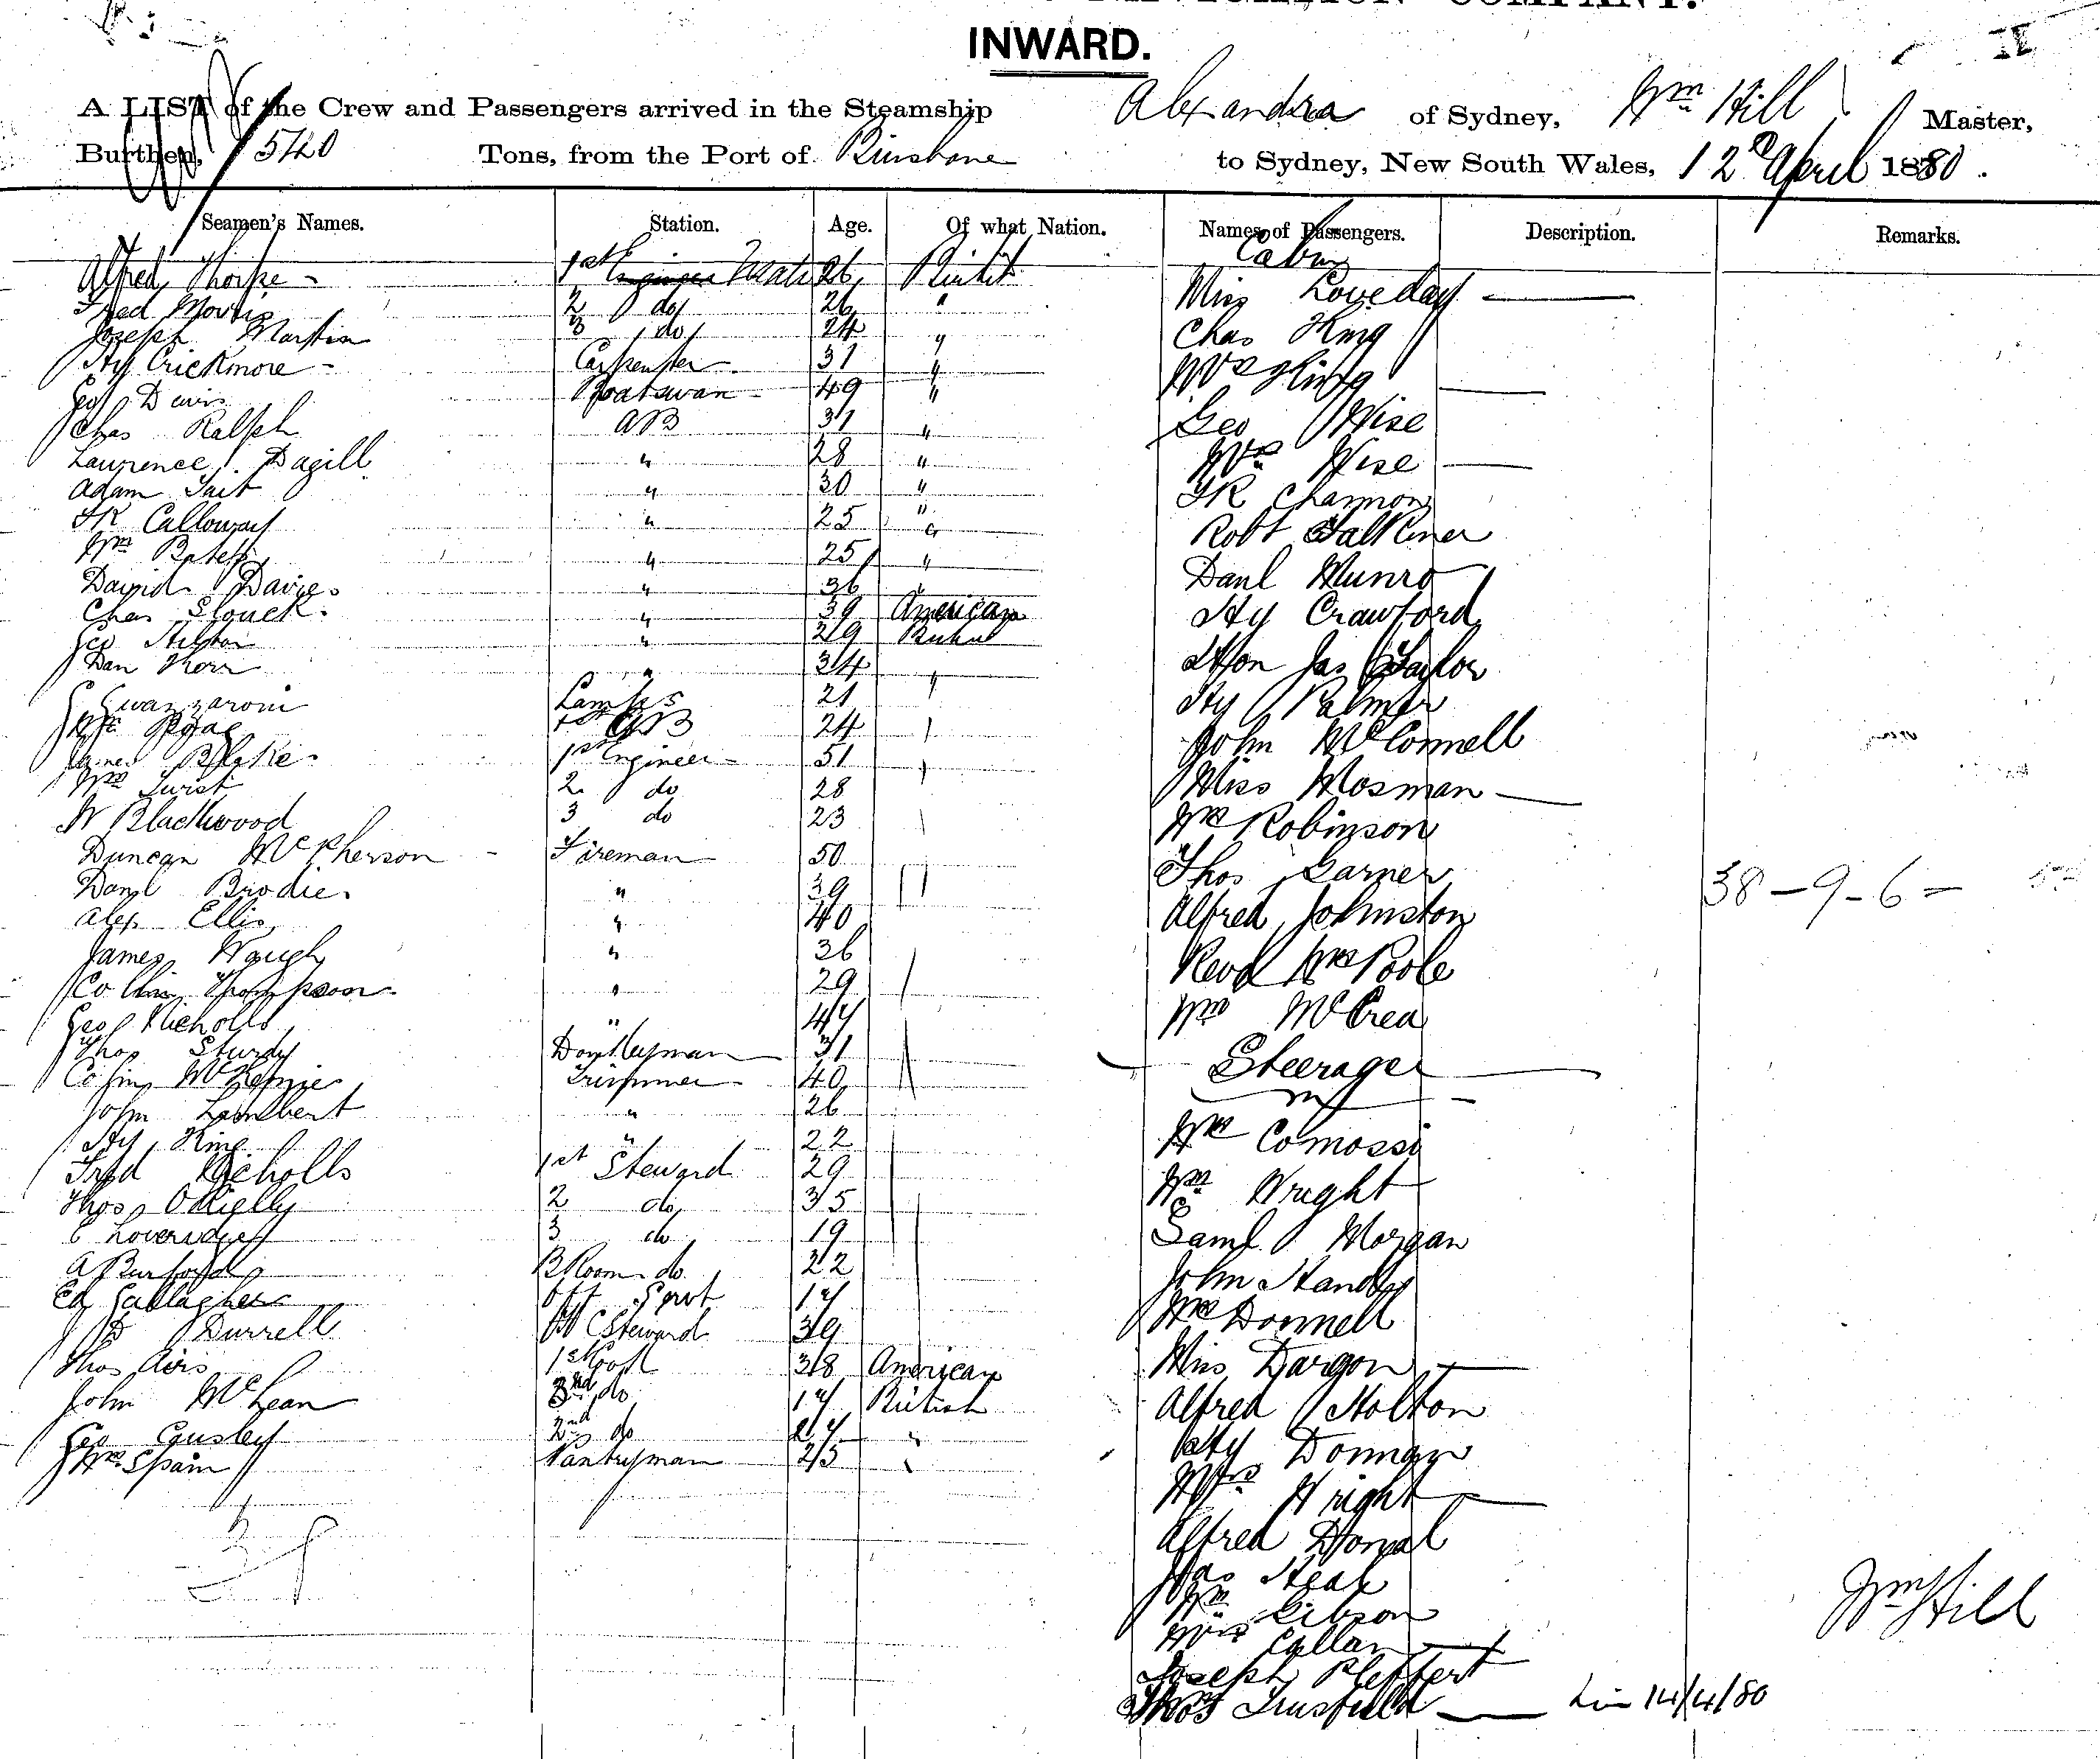 NAVIGATION COMPANY.
INWARD.
A LIST of the Crew and Passengers arrived in the Steamship Alexandra of Sydney, Wm Hill Master,
Burthen, 540 Tons, from the Port of Brisbane to Sydney, New South Wales, 12th April 1880.
Seamen's Names. Station. Age. Of what Nation. Names of Passengers. Description. Remarks.
Cabin
Alfred Thorpe 1st Engineer Mate 26 British Miss Loveday
Fred 2 do 26 "
Joseph Martin 3 do 24 " Chas King
Hy Crickmore Carpenter 31 " Mrs King
Geo Davis Boatswan 49 "
Chas Ralph AB 31 " Geo Wise
Laurence Dagill " 28 " Mrs Wise
Adam Tait " 30 " Channon
Calloway " 25 " Robt Falkiner
Wm " 25 " Danl Munro
David Davies " 36 "
Chas " 39 American Hy Crawford
Geo " 29 British
Dan Kerr " 34 " Hon Jas Taylor
21 Hy Palmer
Wm AB 24 John McConnell
James Blake 1st Engineer 51
Wm 2 do 28 Miss Mosman
W Blackwood 3 do 23 Wm Robinson
Duncan McPherson Fireman 50 Thos Garner
Danl Brodie " 39 38-9-6
Alex Ellis " 40 Alfred Johnston
James Waugh " 36 Revd Wm Poole
Collin Thompson " 29
Geo Nicholls " 44 Wm McCrea
Thos Sturdy Donkeyman 31 Steerage
McKenzie Trimmer 40
John Lambert " 26
Hy King " 22 Wm Comossi
Fred Nicholls 1st Steward 29 Wm Wright
Thos O'Rielly 2 do 35
3 do 19 Saml Morgan
A Burford B Room do 22 John Standby
Ed Gallagher 17 Wm Donnell
Durrell Steward 39
Thos Airs 1st Cook 38 American Miss Dargon
John McLean 2nd do 17 British Alfred Holton
Geo Gusley 2nd do "
Wm Spain Pantryman 25 Mrs Wright
Alfred
Wm Gibson
Mrs Callan
Joseph Pfeffert
Thos Trusfield 14/4/80
Wm Hill